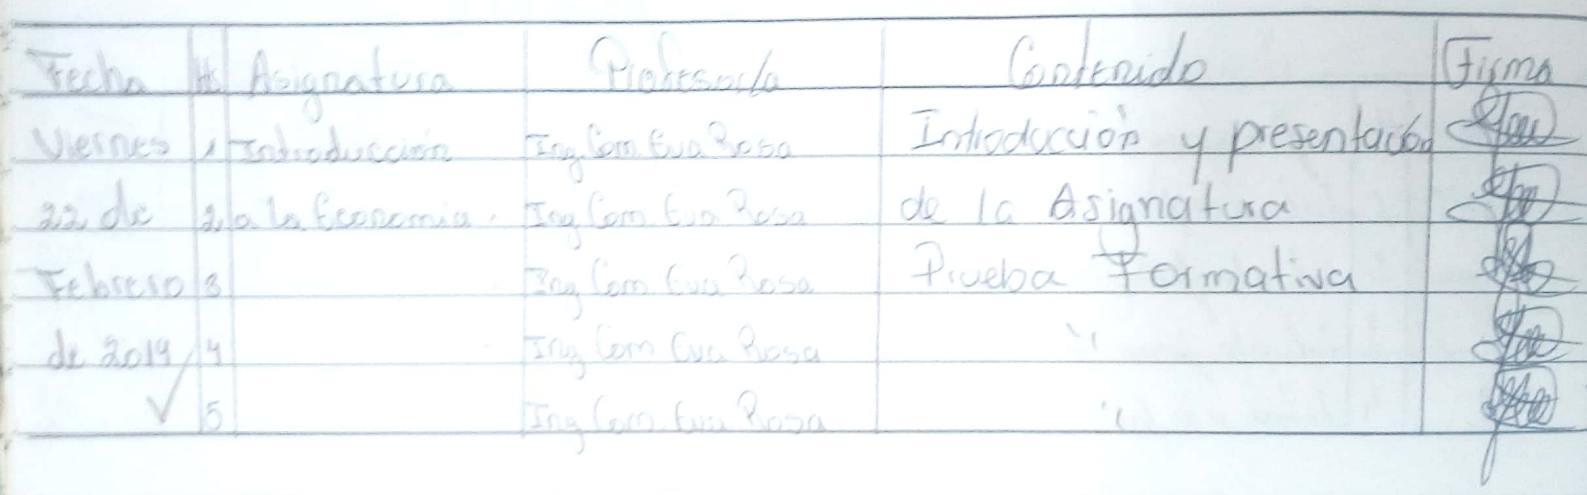 Fecha Hs Asignatura Profesor/a Contenido Firma
Viernes 1 Introducción Ing Com Eva Rosa Introducción y presentación
22 de 2 a la Economia. Ing Com Eva Rosa de la Asignatura
Febrero 3 Ing Com Eva Rosa Prueba Formativa
de 2019 4 Ing Com Eva Rosa "
5 Ing Com Eva Rosa "